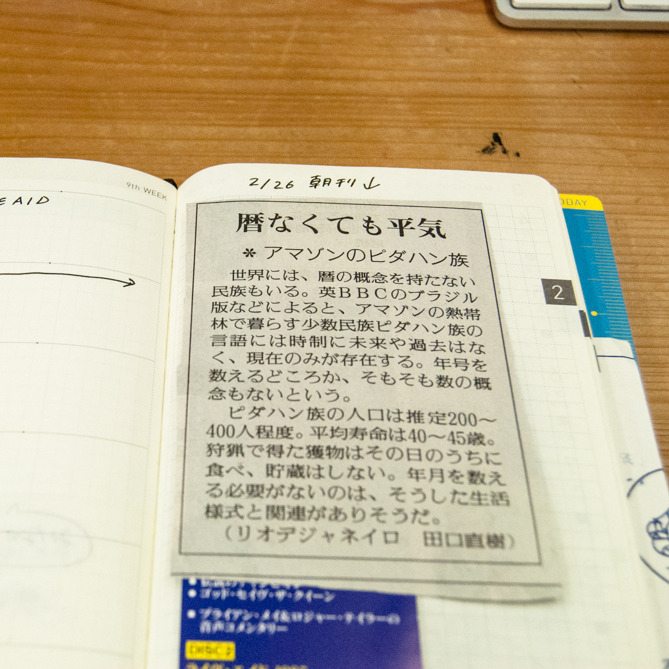 9th WEEK
E AID
2/26 朝刊↓
TODAY
2
暦なくても平気
＊アマゾンのピダハン族
世界には、暦の概念を持たない
民族もいる。英ＢＢＣのブラジル
版などによると、アマゾンの熱帯
林で暮らす少数民族ピダハン族の
言語には時制に未来や過去はな
く、現在のみが存在する。年号を
数えるどころか、そもそも数の概
念もないという。
ピダハン族の人口は推定200〜
400人程度。平均寿命は40〜45歳。
狩猟で得た獲物はその日のうちに
食べ、貯蔵はしない。年月を数え
る必要がないのは、そうした生活
様式と関連がありそうだ。
（リオデジャネイロ　田口直樹）
●ゴッド・セイヴ・ザ・クイーン
●ブライアン・メイ&ロジャー・テイラーの
音声コメンタリー
DISC 2